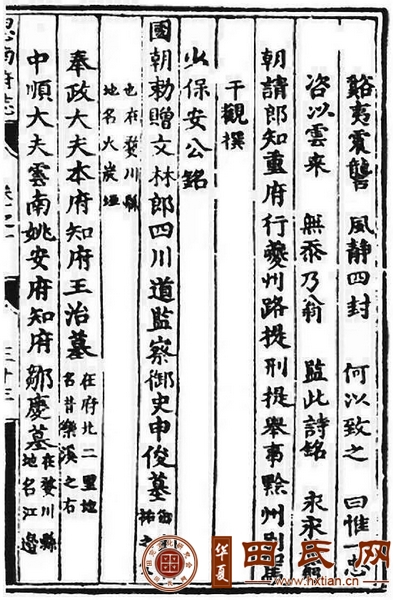 谿夷震讋 風静四封 何以致之 曰惟一忠
咨以雲来 無忝乃翁 監此詩銘 永永無
朝請郎知重府行夔州路提刑提舉事黔州
干觀撰
少保安公銘
國朝勅贈文林郎四川道監察御史申俊墓
也在婺川縣
地名火炭垭
奉政大夫本府知府王治墓 在府北二里地
名昔樂溪之右
中順大夫雲南姚安府知府鄒慶墓 在婺川縣
地名江邊
思南府志
卷之
三十三
華夏
田氏网
www.hxtian.cn